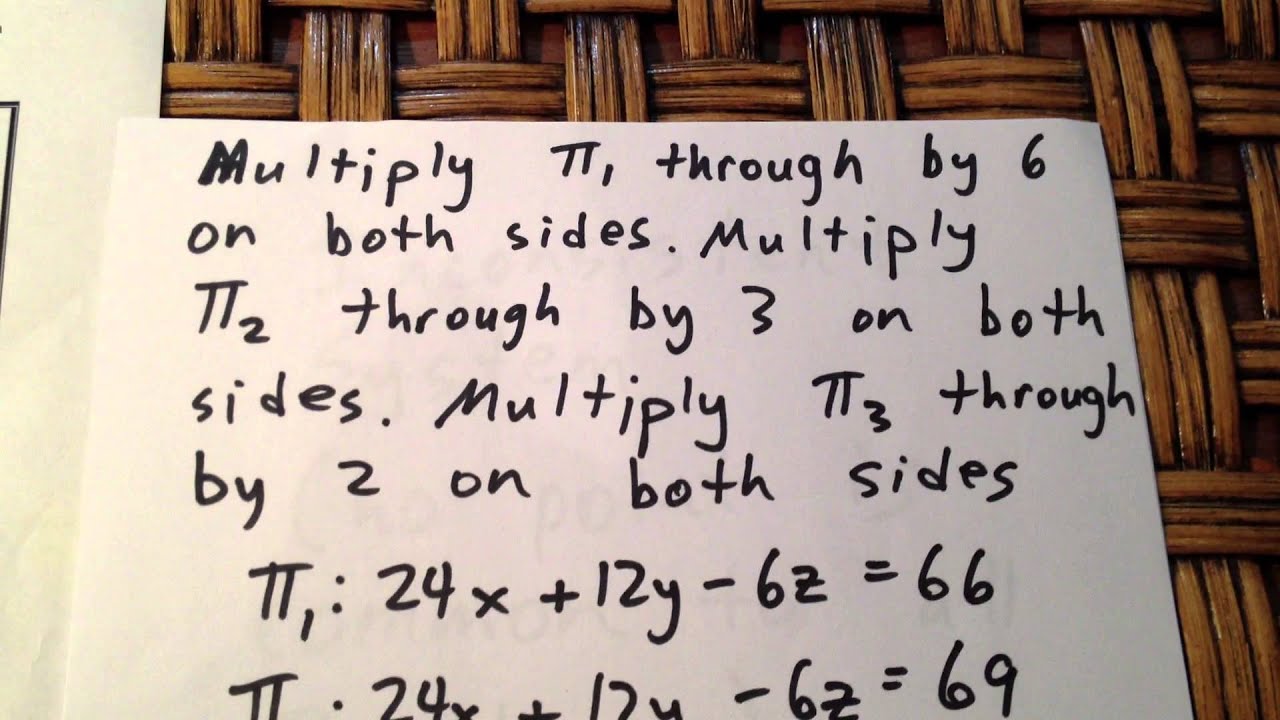 Multiply π₁ through by 6
on both sides. Multiply
π₂ through by 3 on both
sides. Multiply π₃ through
by 2 on both sides
π₁: 24x + 12y - 6z = 66
π : 24x + 12y - 6z = 69